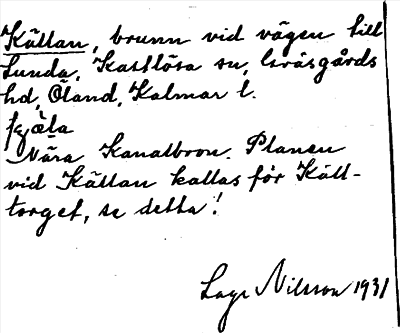 Källan, brunn vid vägen till
Lunda, Kastlösa sn, Gräsgårds
hd, Öland, Kalmar l.
kjæ̀la
Nära Kanalbron. Planen
vid Källan kallas för Käll-
torget, se detta!
Lage Nilsson 1931